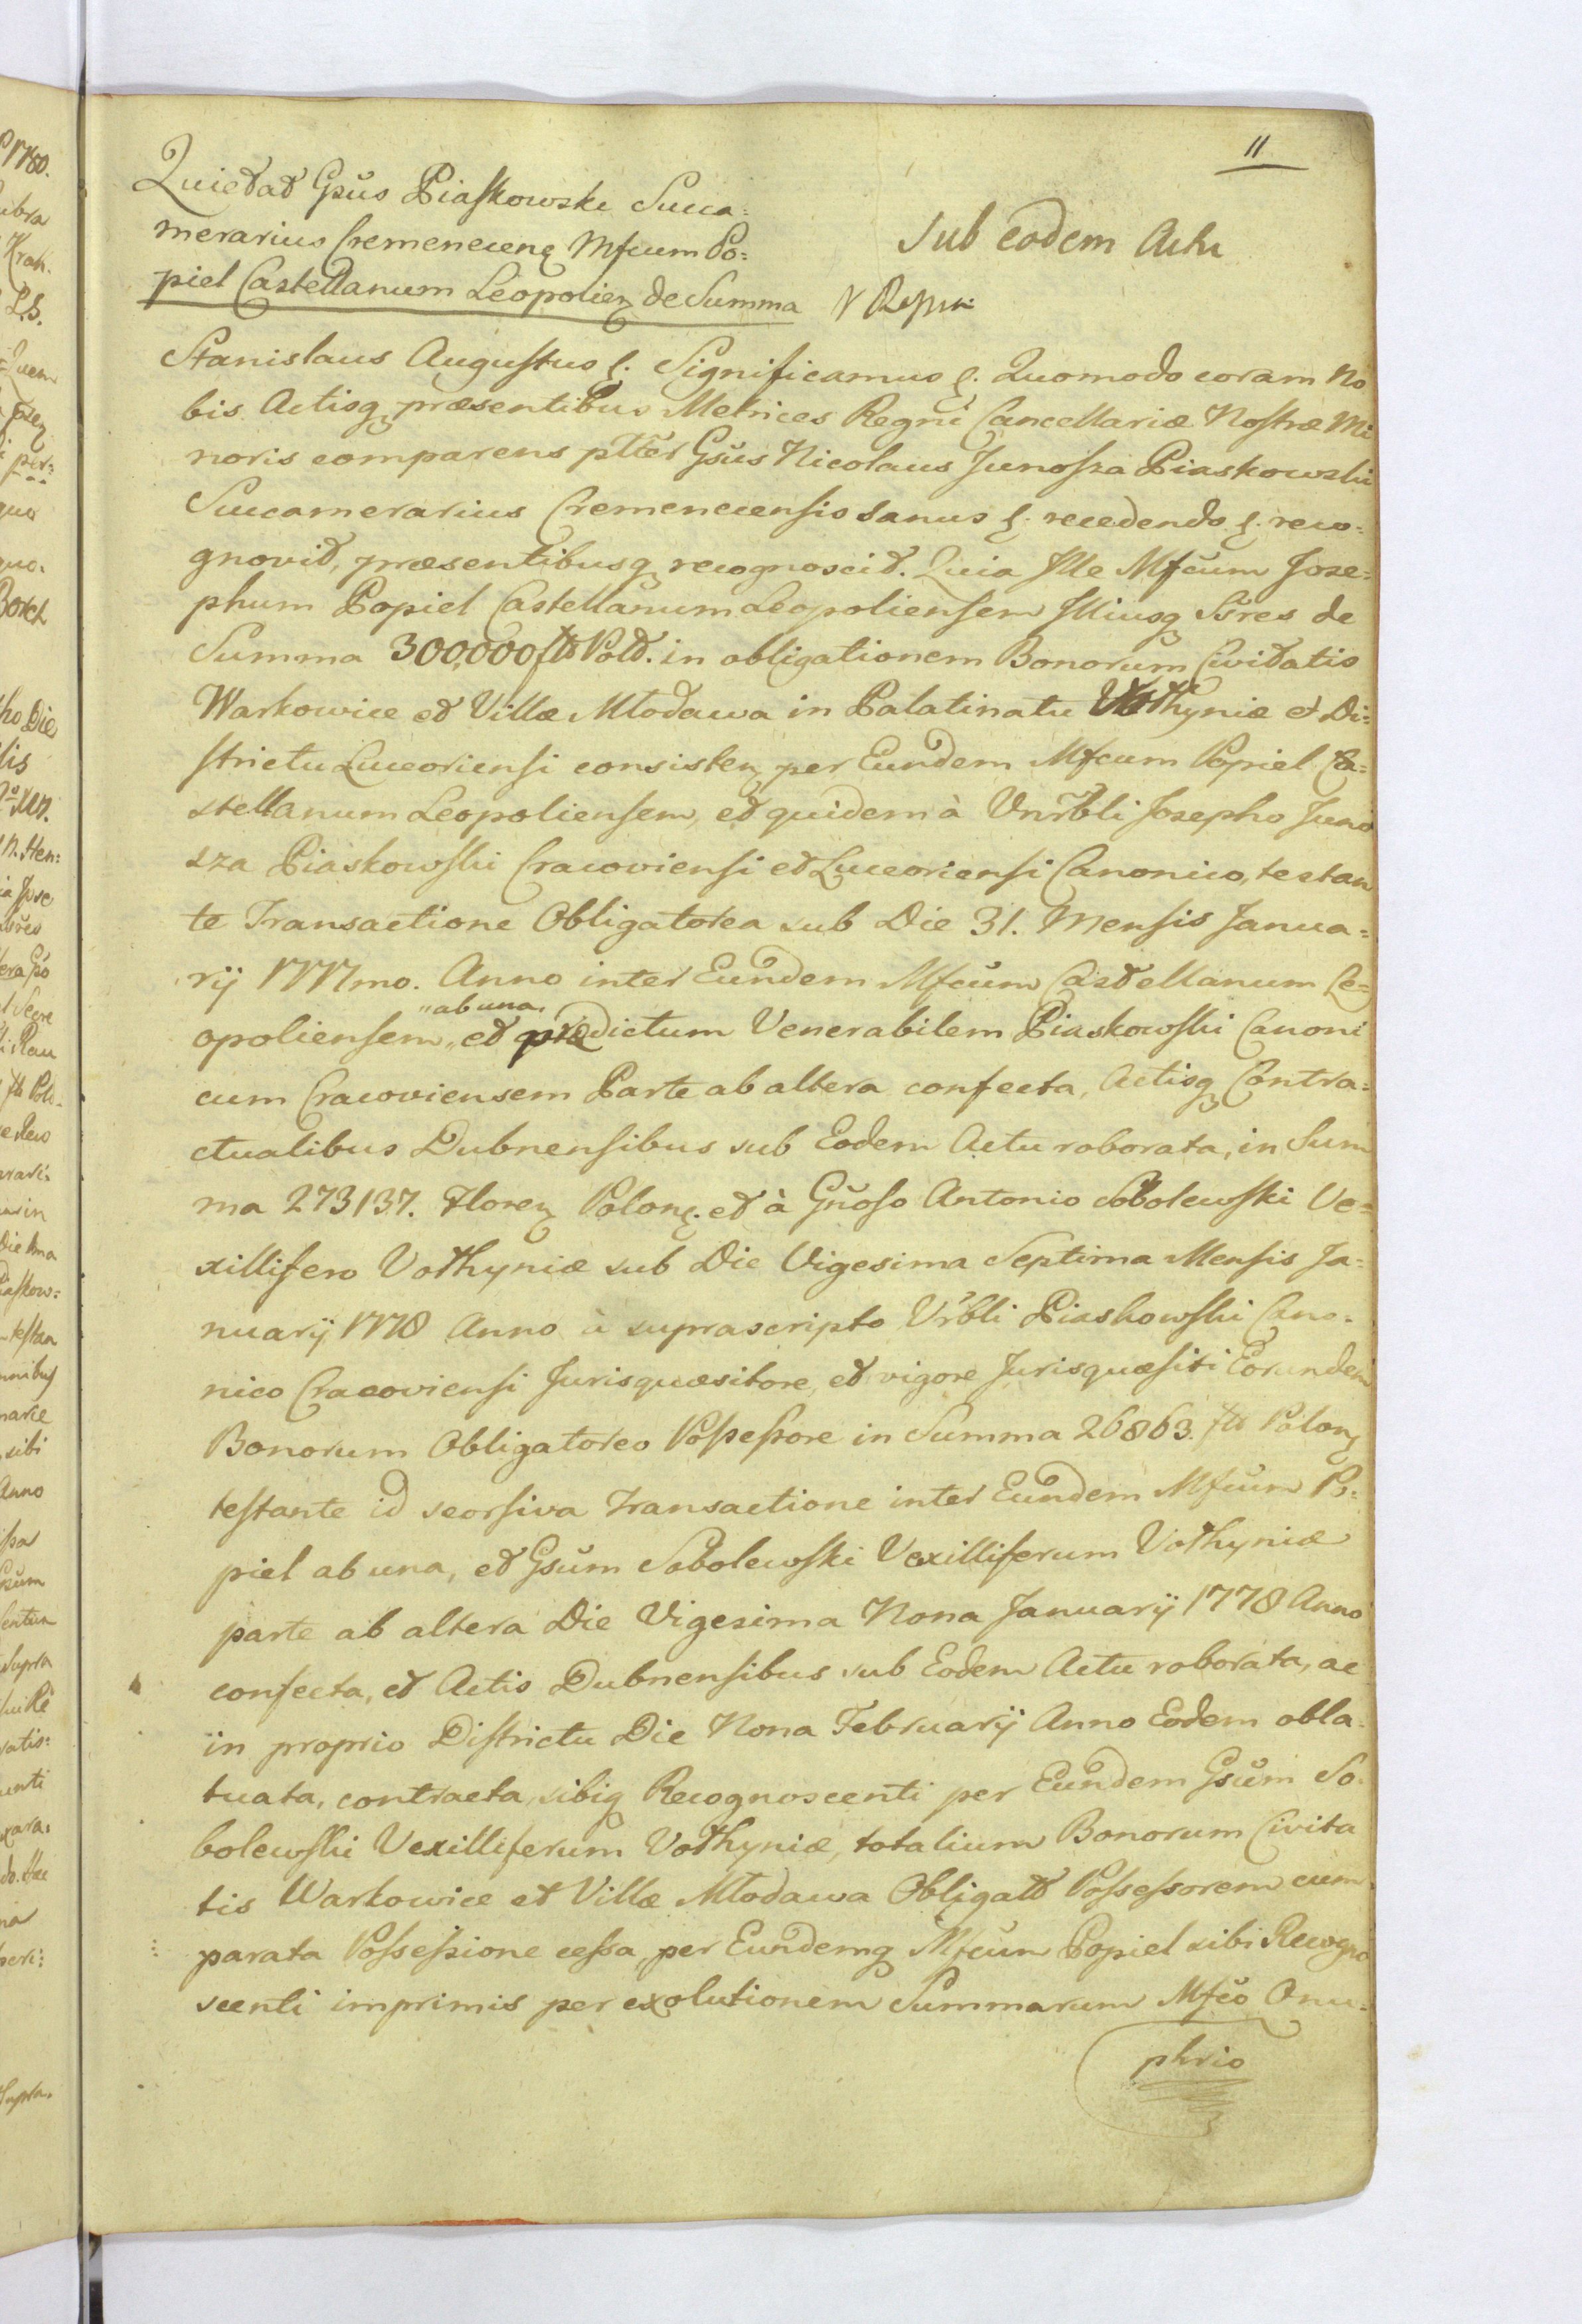 11
Quietat Gsus Piaskowski Succa:
merarius Cremenecens Mfcum Po:
piel Castellanum Leopolien de Summa
Sub eodem Actu
Stanislaus Augustus &. Significamus &. Quomodo coram No
bis Actisq præsentibus Metrices Regni Cancellariæ Nostræ Mi
noris comparens plter Gsus Nicolaus Junosza Piaskowski
Succamerarius Cremenecensis sanus &. recedendo &. reco:
gnovit, præsentibusq recognoscit. Quia Ille Mfcum Jose:
phum Popiel Castellanum Leopoliensem Illiusq Ssres de
Summa 300,000 fld Pold. in obligationem Bonorum Civitatis
Warkowice et Villæ Młodawa in Palatinatu Volhyniæ et Di:
strictu Luceoriensi consisten per Eundem Mfcum Popiel Ca:
stellanum Leopoliensem, et quidem à Vnrbli Josepho Juno
sza Piaskowski Cracoviensi et Luceoriensi Canonico, testan
te Transactione Obligatorea sub Die 31. Mensis Janua:
rij 1777mo. Anno inter Eundem Mfcum Castellanum Le=
opoliensem „ab una, et prædictum Venerabilem Piaskowski Canoni
cum Cracoviensem Parte ab altera confecta, Actisq Contra:
ctualibus Dubnensibus sub Eodem Actu roborata, in Sum
ma 273137. Floren Polon. et à Gnoso Antonio Sobolewski Ve=
xillifero Volhyniæ sub Die Vigesima Septima Mensis Ja:
nuarij 1778 Anno à suprascripto Vrbli Piaskowski Cano:
nico Cracoviensi Jurisquæsitore, et vigore Jurisquæsiti Eorundem
Bonorum Obligatoreo Possessore in Summa 26863. fld Polon
testante id seorsiva Transactione inter Eundem Mfcum Po:
piel ab una, et Gsum Sobolewski Vexilliferum Volhyniæ
parte ab altera Die Vigesima Nona Januarij 1778 Anno
confecta, et Actis Dubnensibus sub Eodem Actu roborata, ac
in proprio Districtu Die Nona Februarij Anno Eodem obla:
tuata, contracta, sibiq Recognoscenti per Eundem Gsum So:
bolewski Vexilliferum Volhyniæ, totalium Bonorum Civita
tis Warkowice et Villæ Młodawa Obligatd Possessorem cum
parata Possessione cessa, per Eundemq Mfcum Popiel sibi Recogno
scenti imprimis per exolutionem Summarum Mfco Onu:
phrio